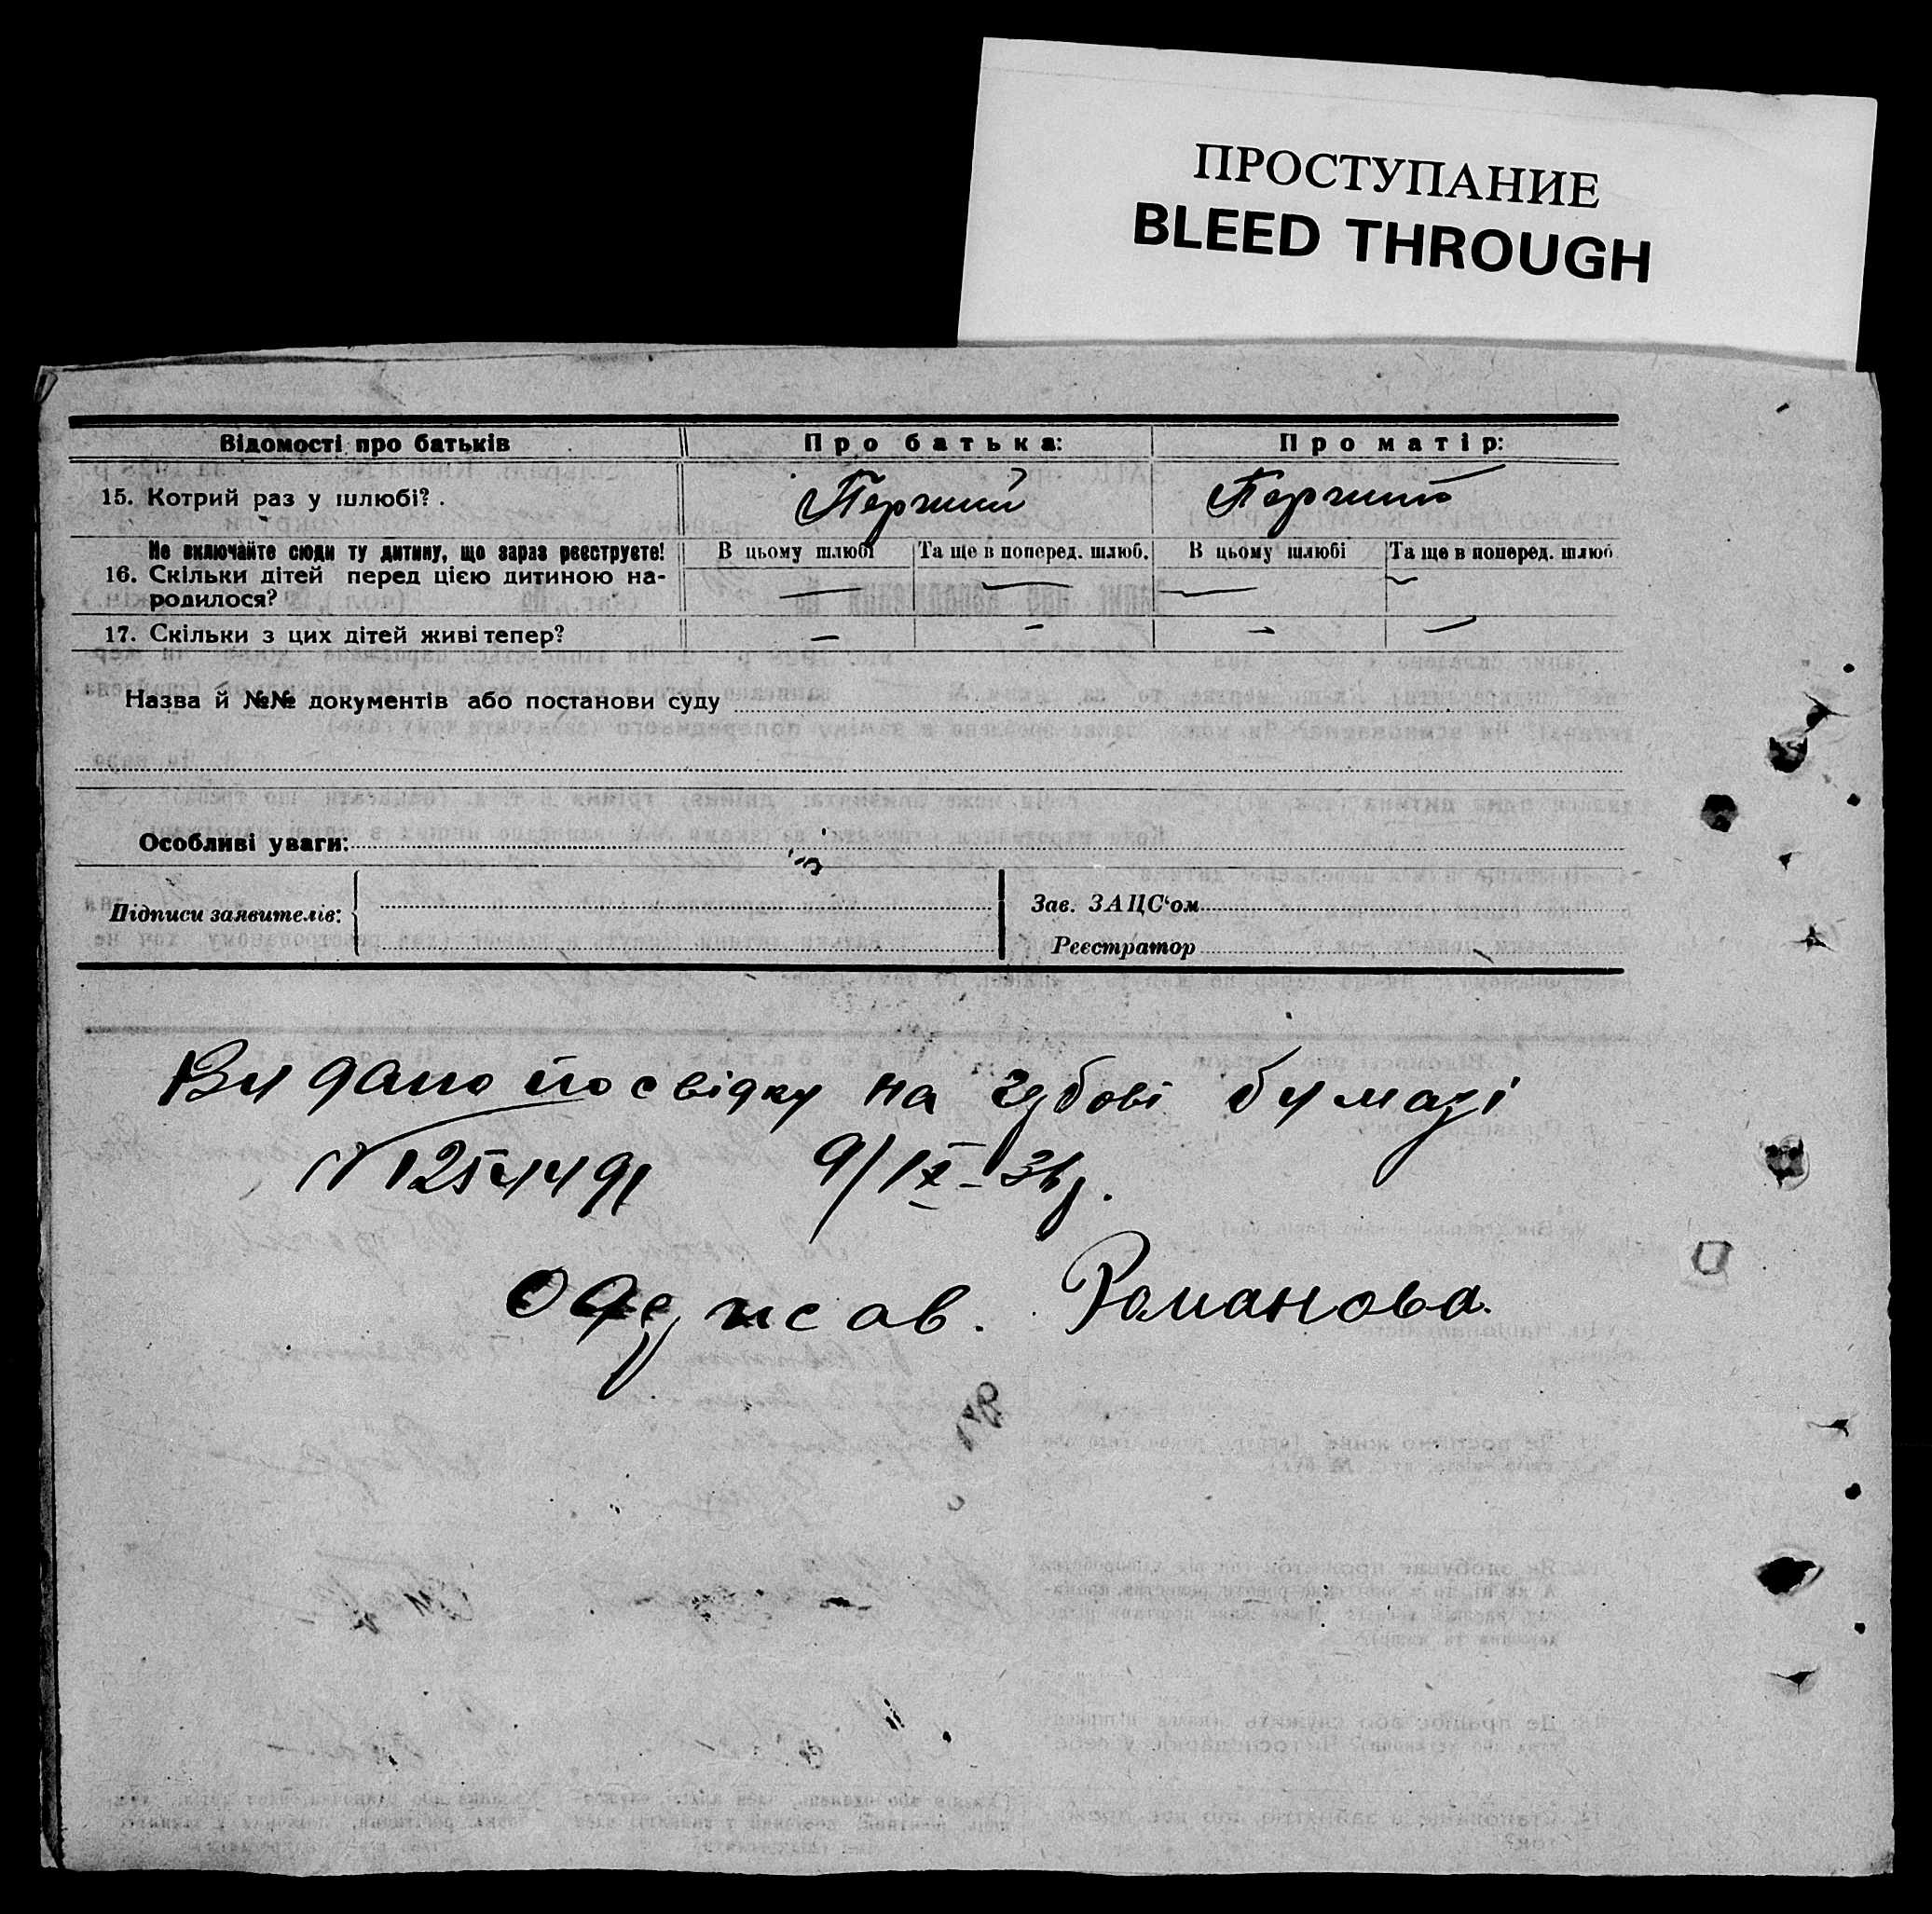 ПРОСТУПАНИЕ
BLEED THROUGH
Відомості про батьків
Про батька:
Про матір:
15. Котрий раз у шлюбі?
Перший
Перший
Не включайте сюди ту дитину, що зараз реєструєте!
В цьому шлюбі
Та ще в поперед. шлюб.
В цьому шлюбі
Та ще в поперед. шлюб
16. Скільки дітей перед цією дитиною на-
родилося?
— — — —
17. Скільки з цих дітей живі тепер?
— — — —
Назва й №№ документів або постанови суду
Особливі уваги:
Підписи заявителів:
Зав. ЗАЦС'ом
Реєстратор
Видано посвідку на бумазі
9/IX–
Романова.